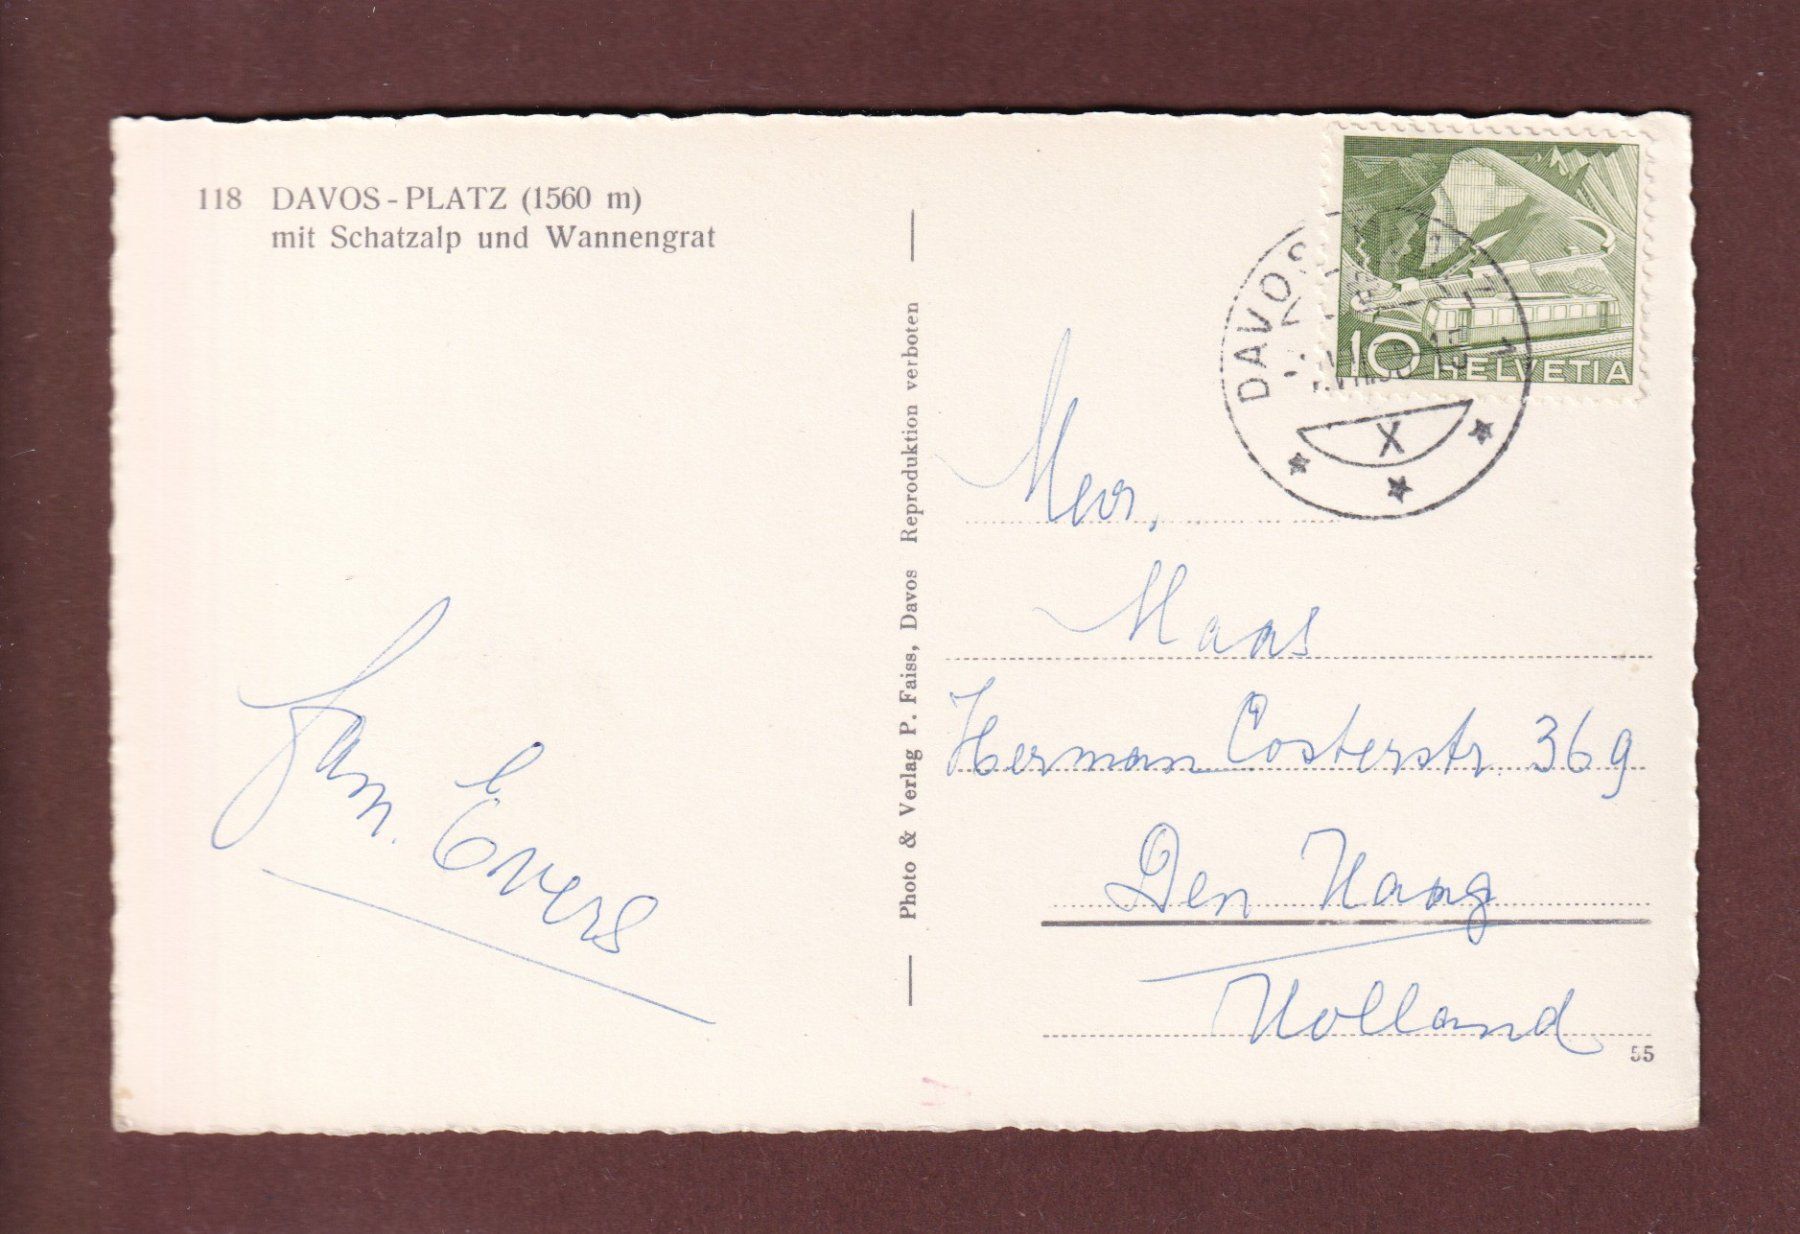 118 DAVOS-PLATZ (1560 m)
mit Schatzalp und Wannengrat
Fam. Evers
Photo & Verlag P. Faiss, Davos Reproduktion verboten
10 HELVETIA
DAVOS
X
Maas
Herman Costerstr. 369
Den Haag
Holland
55